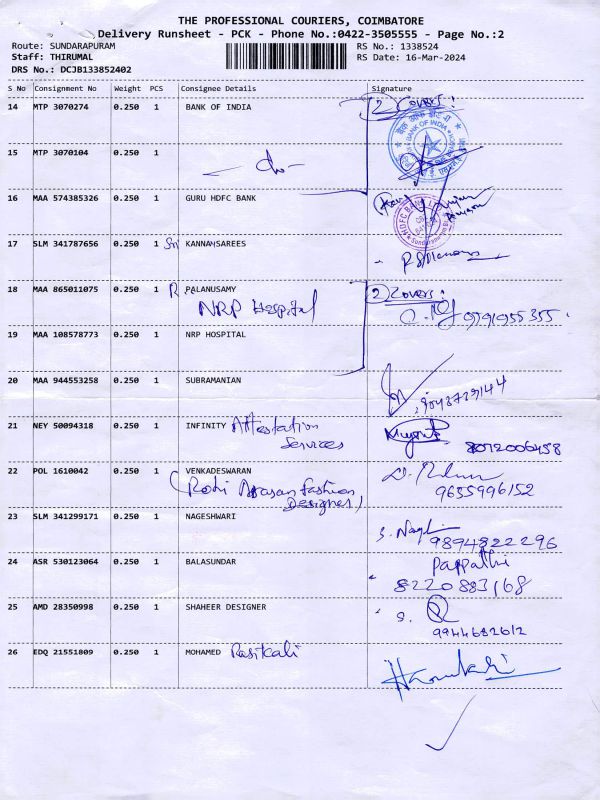 THE PROFESSIONAL COURIERS, COIMBATORE
Delivery Runsheet - PCK - Phone No.:0422-3505555 - Page No.:2
Route: SUNDARAPURAM RS No.: 1338524
Staff: THIRUMAL RS Date: 16-Mar-2024
DRS No.: DCJB133852402
S No Consignment No Weight PCS Consignee Details Signature
14 MTP 3070274 0.250 1 BANK OF INDIA 2 Covers!
BANK OF INDIA
15 MTP 3070104 0.250 1
16 MAA 574385326 0.250 1 GURU HDFC BANK
HDFC BANK
17 SLM 341787656 0.250 1 Sri KANNAN SAREES
18 MAA 865011075 0.250 1 R PALANUSAMY 2 Covers!
NRP Hospital 9791955355
19 MAA 108578773 0.250 1 NRP HOSPITAL
20 MAA 944553258 0.250 1 SUBRAMANIAN
9043729144
21 NEY 50094318 0.250 1 INFINITY Attestation
Services 8072006458
22 POL 1610042 0.250 1 VENKADESWARAN
(Rohi Arasan Fashion 9655996152
Designer)
23 SLM 341299171 0.250 1 NAGESHWARI S. Nag
9894822296
24 ASR 530123064 0.250 1 BALASUNDAR Pappathi
8220883168
25 AMD 28350998 0.250 1 SHAHEER DESIGNER S.
9944682612
26 EDQ 21551809 0.250 1 MOHAMED Rasikali